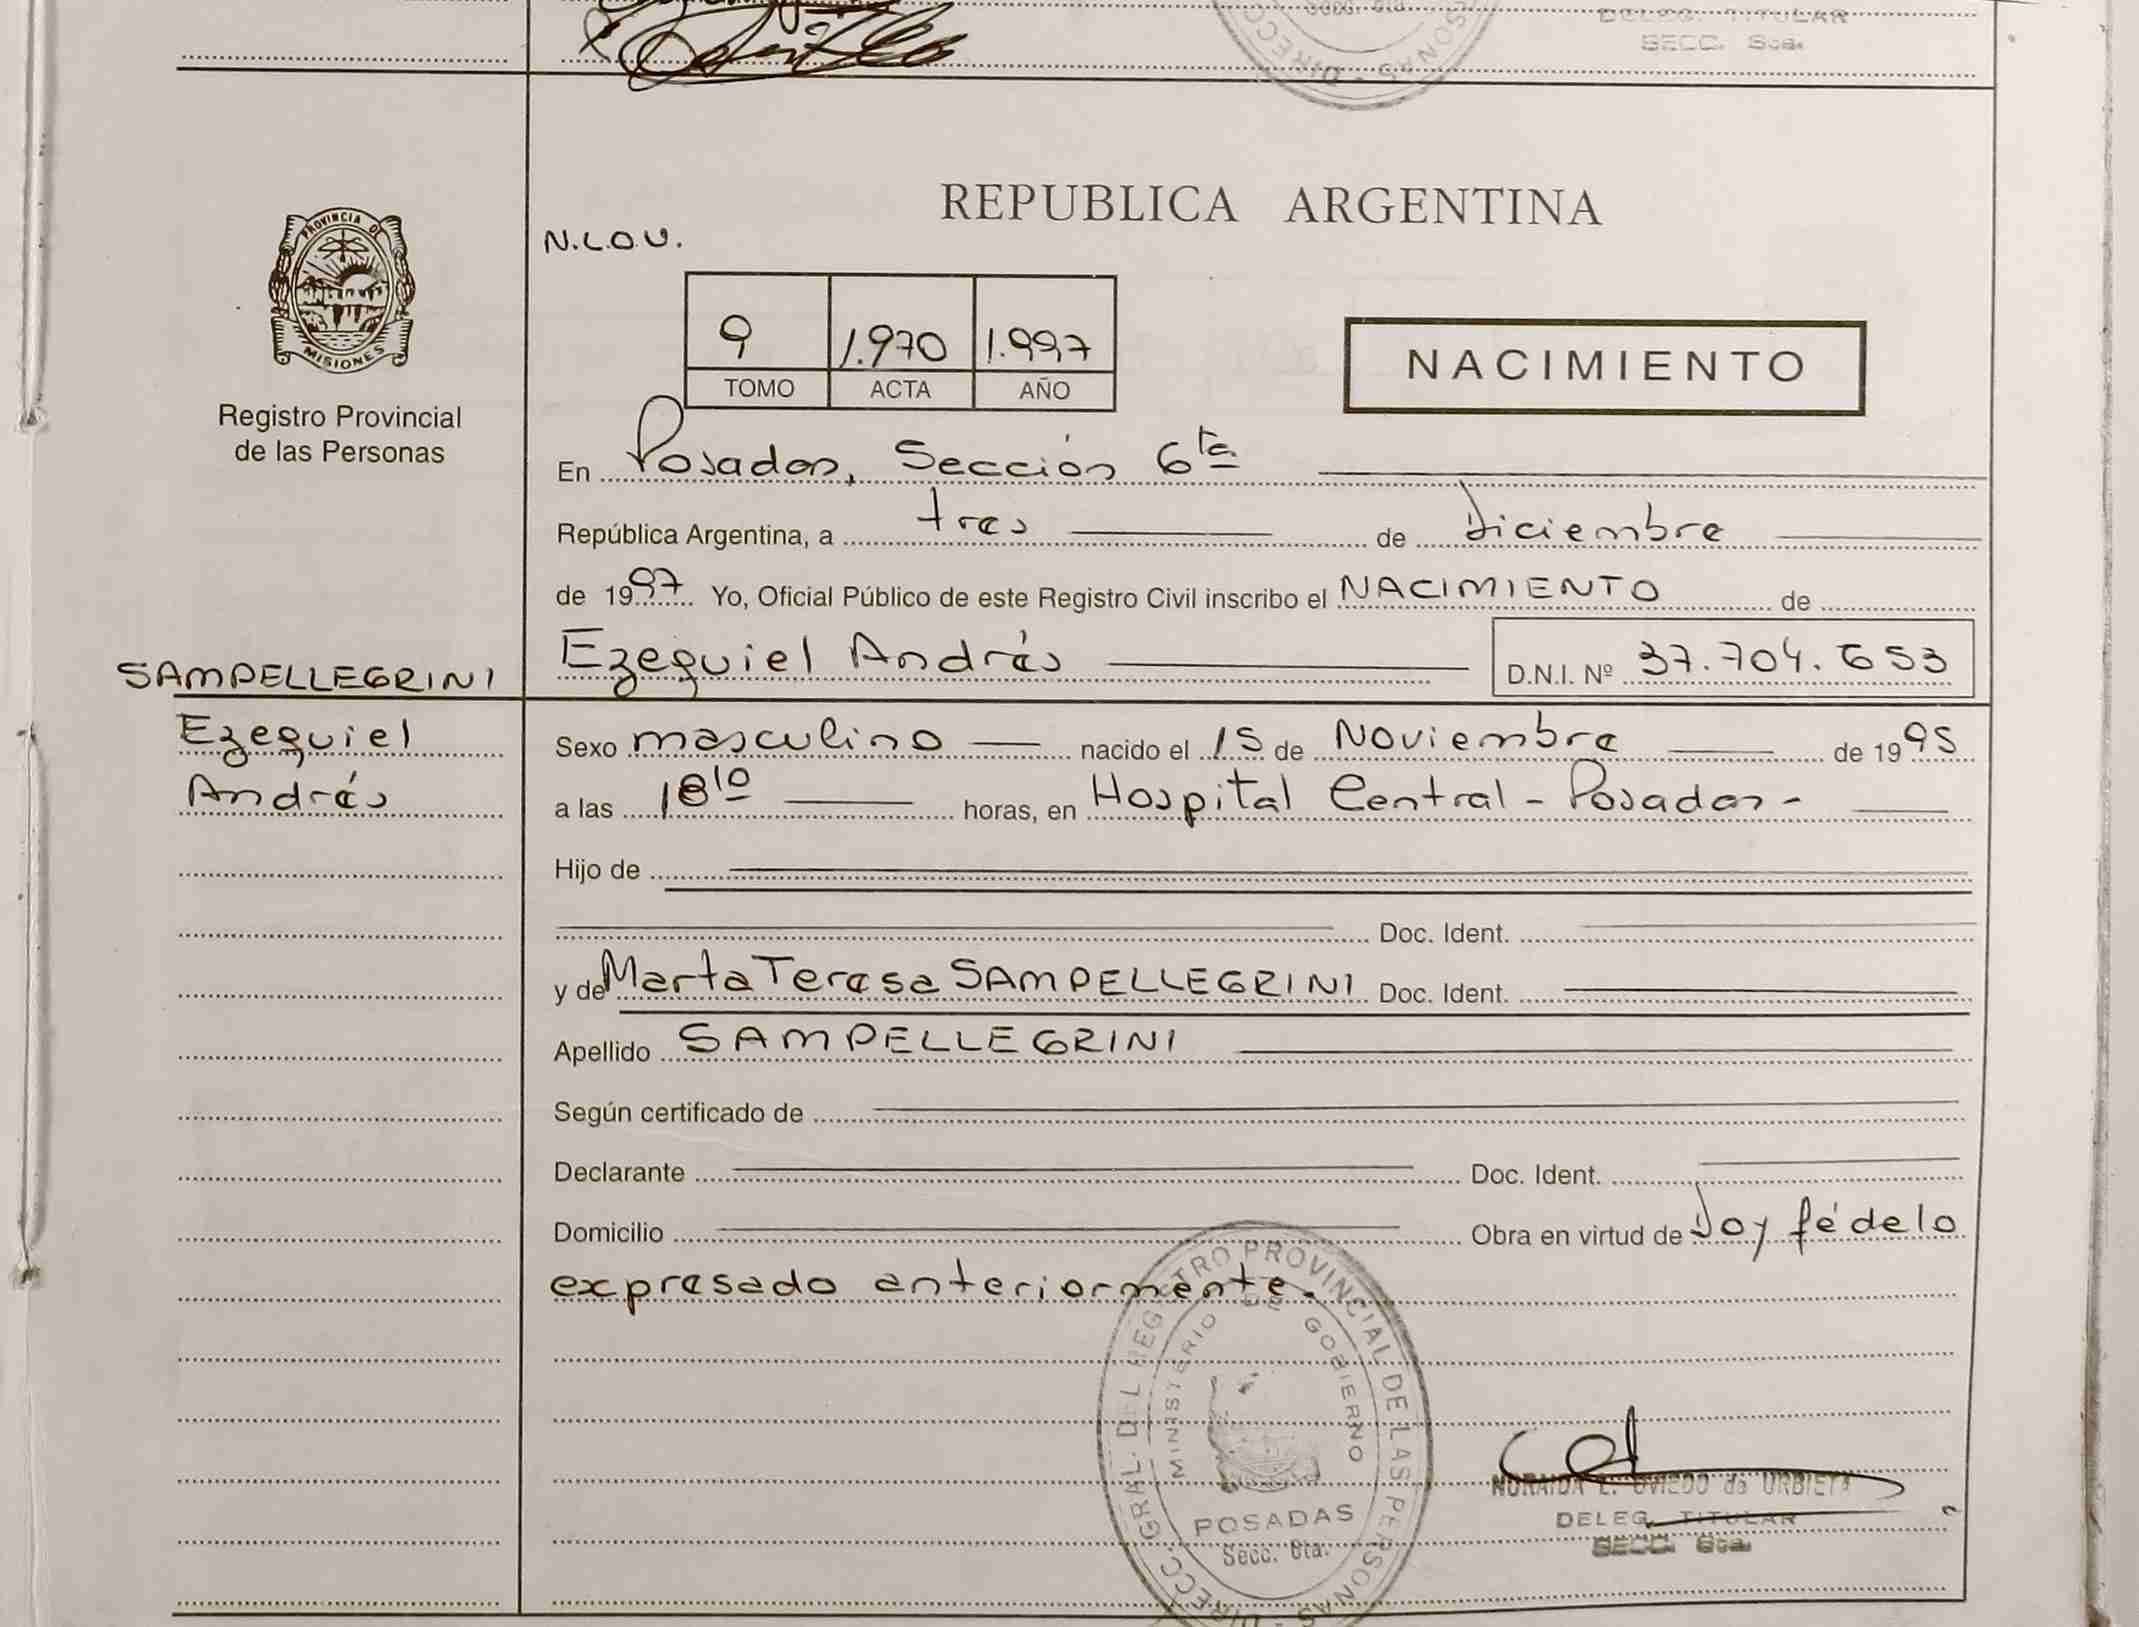 DELEG. TITULAR
SECC. 6ta.
PROVINCIA DE
MISIONES
Registro Provincial
de las Personas
REPUBLICA ARGENTINA
N.L.O.V.
9 1.970 1.997
TOMO ACTA AÑO
NACIMIENTO
En Posadas, Sección 6ta
República Argentina, a tres de Diciembre
de 1997 Yo, Oficial Público de este Registro Civil inscribo el NACIMIENTO de
Ezequiel Andrés D.N.I. Nº 37.704.653
SAMPELLEGRINI
Ezequiel
Andrés
Sexo masculino nacido el 15 de Noviembre de 1995
a las 18 10 horas, en Hospital Central - Posadas -
Hijo de
Doc. Ident.
y de Marta Teresa SAMPELLEGRINI Doc. Ident.
Apellido SAMPELLEGRINI
Según certificado de
Declarante Doc. Ident.
Domicilio Obra en virtud de Doy fé de lo
expresado anteriormente.
DIRECC. GRAL. DEL REGISTRO PROVINCIAL DE LAS PERSONAS
MINISTERIO DE GOBIERNO
POSADAS
Secc. 6ta.
OVIEDO de URBIETA
DELEG. TITULAR
SECC. 6ta.